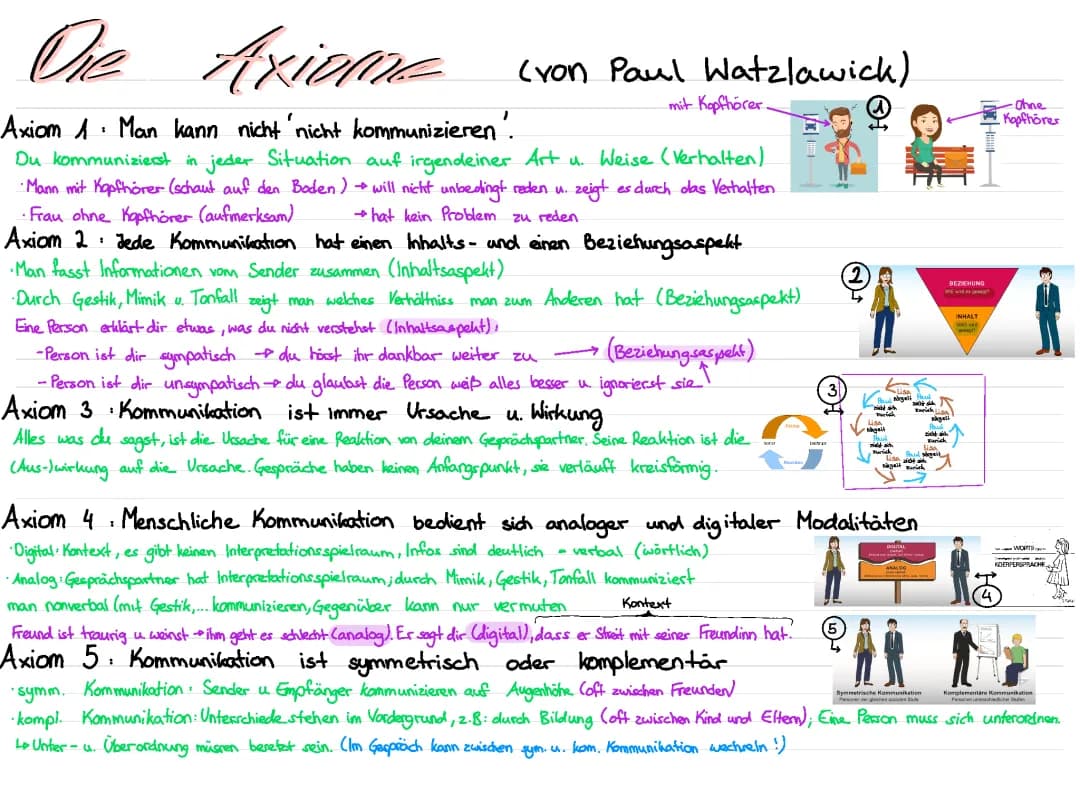 Die Axiome (von Paul Watzlawick)
mit Kopfhörer
1
Ohne Kopfhörer
Axiom 1 : Man kann nicht 'nicht kommunizieren'.
Du kommunizierst in jeder Situation auf irgendeiner Art u. Weise (Verhalten)
· Mann mit Kopfhörer (schaut auf den Boden) → will nicht unbedingt reden u. zeigt es durch das Verhalten
· Frau ohne Kopfhörer (aufmerksam) → hat kein Problem zu reden
Axiom 2 : Jede Kommunikation hat einen Inhalts- und einen Beziehungsaspekt
· Man fasst Informationen vom Sender zusammen (Inhaltsaspekt)
· Durch Gestik, Mimik u. Tonfall zeigt man welches Verhältniss man zum Anderen hat (Beziehungsaspekt)
Eine Person erklärt dir etwas, was du nicht verstehst (Inhaltsaspekt);
- Person ist dir sympatisch → du hörst ihr dankbar weiter zu → (Beziehungsaspekt)
- Person ist dir unsympatisch → du glaubst die Person weiß alles besser u. ignorierst sie
2
BEZIEHUNG
INHALT
Axiom 3 : Kommunikation ist immer Ursache u. Wirkung
Alles was du sagst, ist die Ursache für eine Reaktion von deinem Gesprächspartner. Seine Reaktion ist die
(Aus-)wirkung auf die Ursache. Gespräche haben keinen Anfangspunkt, sie verläuft kreisförmig.
3
Lisa nörgelt
Paul zieht sich zurück
Lisa nörgelt
Paul zieht sich zurück
Lisa nörgelt
Paul zieht sich zurück
Lisa nörgelt
Paul zieht sich zurück
Axiom 4 : Menschliche Kommunikation bedient sich analoger und digitaler Modalitäten
· Digital: Kontext, es gibt keinen Interpretationsspielraum, Infos sind deutlich - verbal (wörtlich)
· Analog: Gesprächspartner hat Interpretationsspielraum; durch Mimik, Gestik, Tonfall kommuniziert
man nonverbal (mit Gestik,... kommunizieren, Gegenüber kann nur vermuten
Kontext
Freund ist traurig u. weinst → ihm geht es schlecht (analog). Er sagt dir (digital), dass er Streit mit seiner Freundinn hat.
DIGITAL
ANALOG
WORTE
KOERPERSPRACHE
4
Axiom 5 : Kommunikation ist symmetrisch oder komplementär
· symm. Kommunikation : Sender u. Empfänger kommunizieren auf Augenhöhe (oft zwischen Freunden)
· kompl. Kommunikation: Unterschiede stehen im Vordergrund, z.B: durch Bildung (oft zwischen Kind und Eltern); Eine Person muss sich unterordnen.
↳ Unter- u. Überordnung müssen besetzt sein. (Im Gespräch kann zwischen sym. u. kom. Kommunikation wechseln !)
5
Symmetrische Kommunikation
Personen der gleichen sozialen Stufe
Komplementäre Kommunikation
Personen unterschiedlicher Stufen